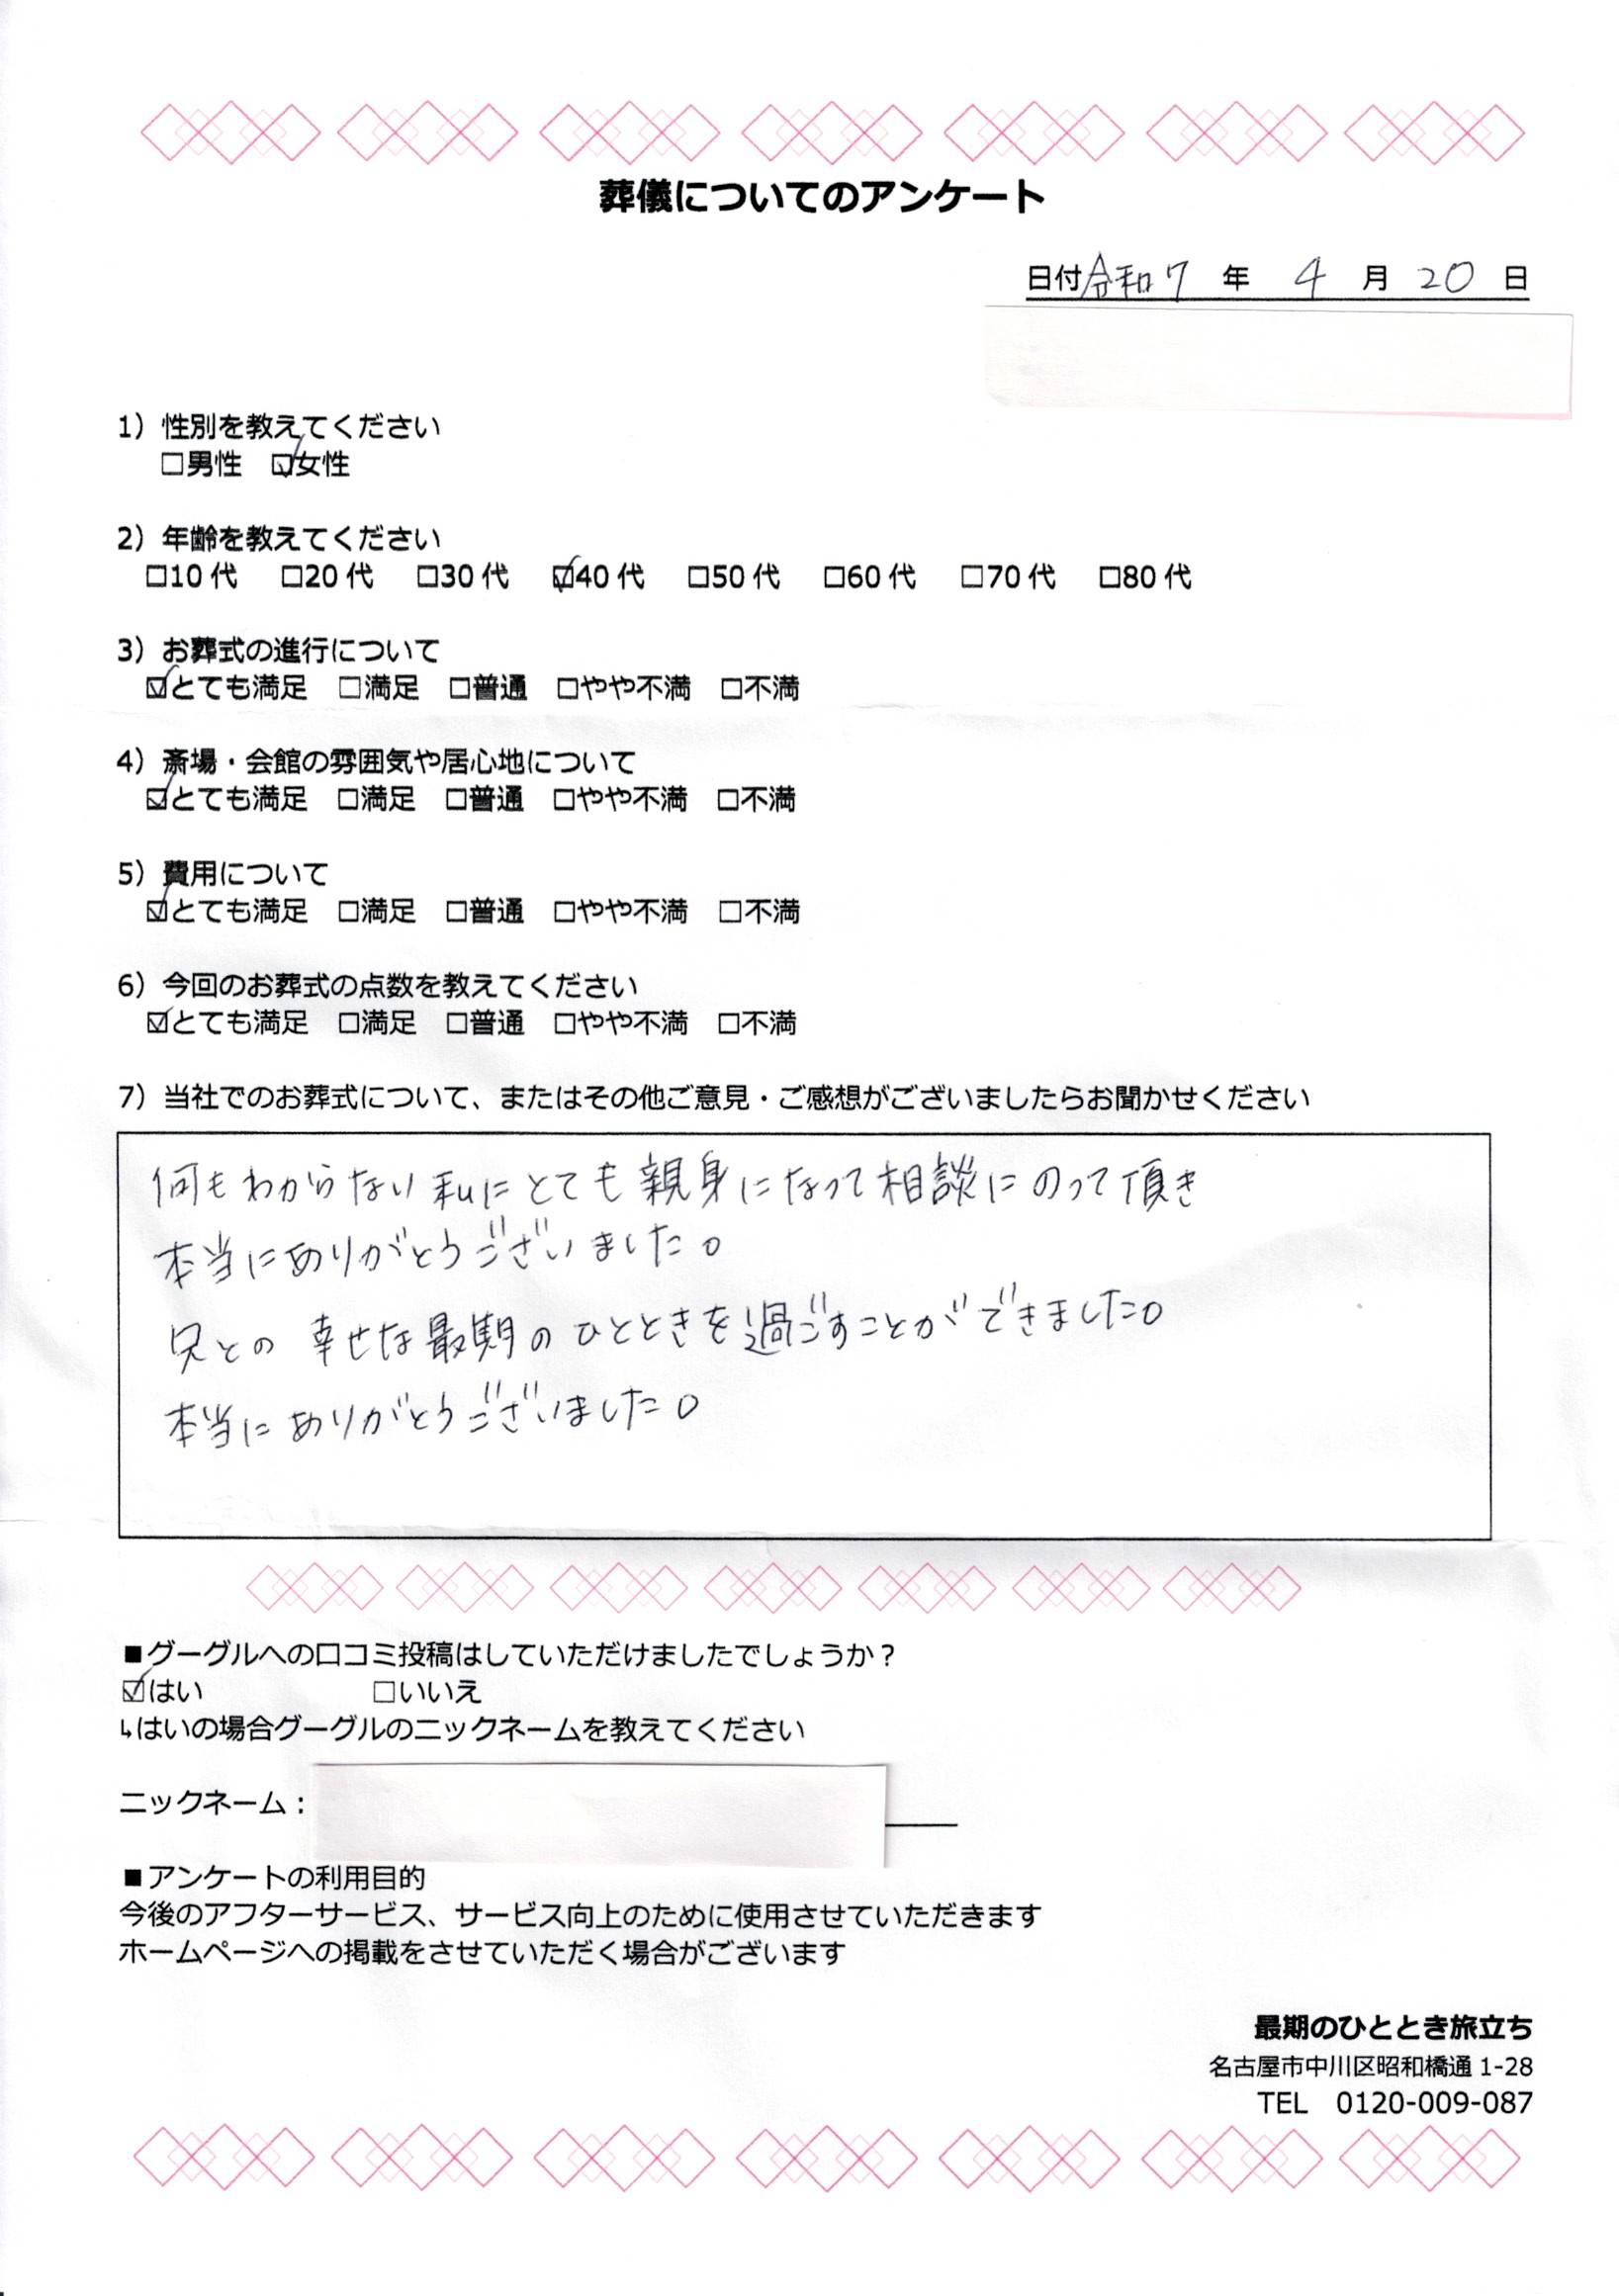 葬儀についてのアンケート
日付令和7 年 4 月 20 日
1）性別を教えてください
□男性 ☑女性
2）年齢を教えてください
□10代 □20代 □30代 ☑40代 □50代 □60代 □70代 □80代
3）お葬式の進行について
☑とても満足 □満足 □普通 □やや不満 □不満
4）斎場・会館の雰囲気や居心地について
☑とても満足 □満足 □普通 □やや不満 □不満
5）費用について
☑とても満足 □満足 □普通 □やや不満 □不満
6）今回のお葬式の点数を教えてください
☑とても満足 □満足 □普通 □やや不満 □不満
7）当社でのお葬式について、またはその他ご意見・ご感想がございましたらお聞かせください
何もわからない私にとても親身になって相談にのって頂き
本当にありがとうございました。
兄との幸せな最期のひとときを過ごすことができました。
本当にありがとうございました。
■グーグルへの口コミ投稿はしていただけましたでしょうか？
☑はい □いいえ
↳はいの場合グーグルのニックネームを教えてください
ニックネーム：
■アンケートの利用目的
今後のアフターサービス、サービス向上のために使用させていただきます
ホームページへの掲載をさせていただく場合がございます
最期のひととき旅立ち
名古屋市中川区昭和橋通1-28
TEL 0120-009-087